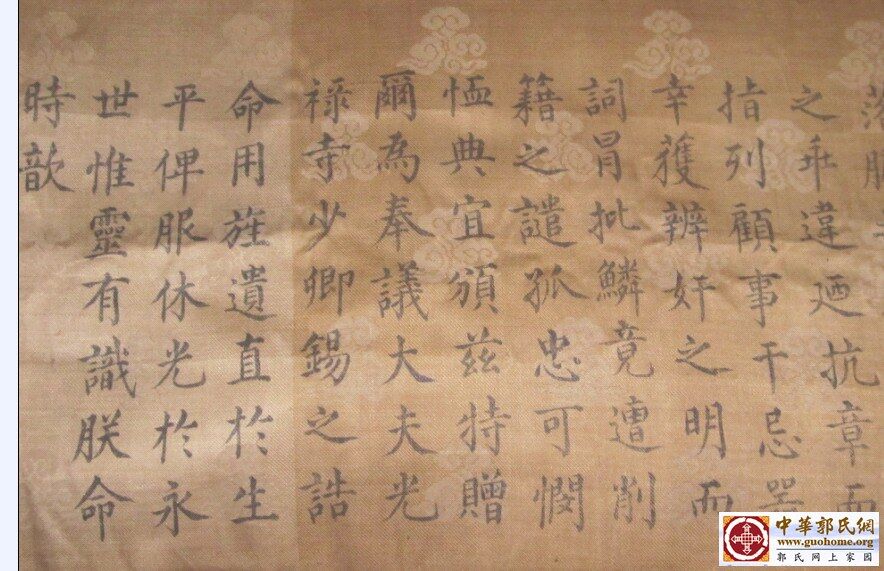 之乖違迺抗章而
指列顧事干忌器
幸獲辨奸之明而
詞冒批鱗竟遭削
籍之譴孤忠可憫
恤典宜頒茲特贈
爾為奉議大夫光
禄寺少卿錫之誥
命用旌遺直於生
平俾服休光於永
世惟靈有識朕命
時歆
中華郭氏網
www.guohome.org
郭氏网上家园